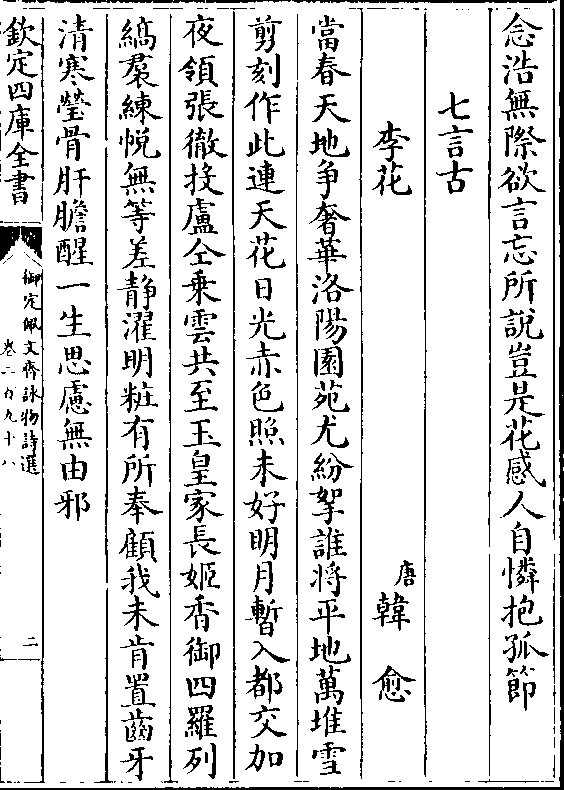 念浩無際欲言忘所說豈是花感人自憐抱孤節
七言古
李花
唐韓愈
當春天地爭奢華洛陽園苑尤紛挐誰將平地萬堆雪
剪刻作此連天花日光赤色照未好明月暫入都交加
夜領張徹投盧仝乗雲共至玉皇家長姬香御四羅列
縞裠練帨無等差静濯明粧有所奉顧我未肯置齒牙
清寒瑩骨肝膽醒一生思慮無由邪
欽定四庫全書
御定佩文齋詠物詩選
卷二百九十八
二